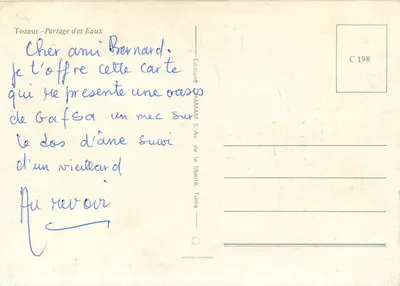 Tozeur - Partage des Eaux
Cher ami Bernard.
je t'offre cette carte
qui represente une oasis
de Gafsa un mec sur
le dos d'âne suivi
d'un vieillard
Au revoir
de la liberté, Tunis
C 198